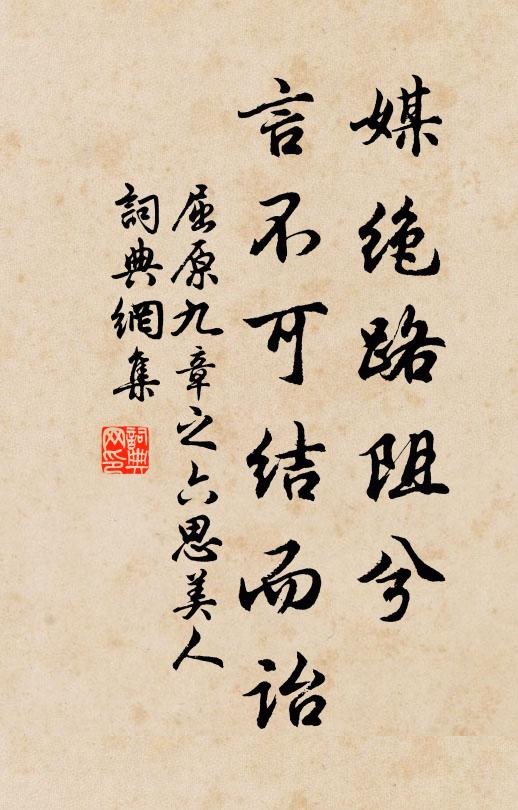 媒绝路阻兮
言不可结而诒
屈原九章之六思美人
詞典網集
詞典网印